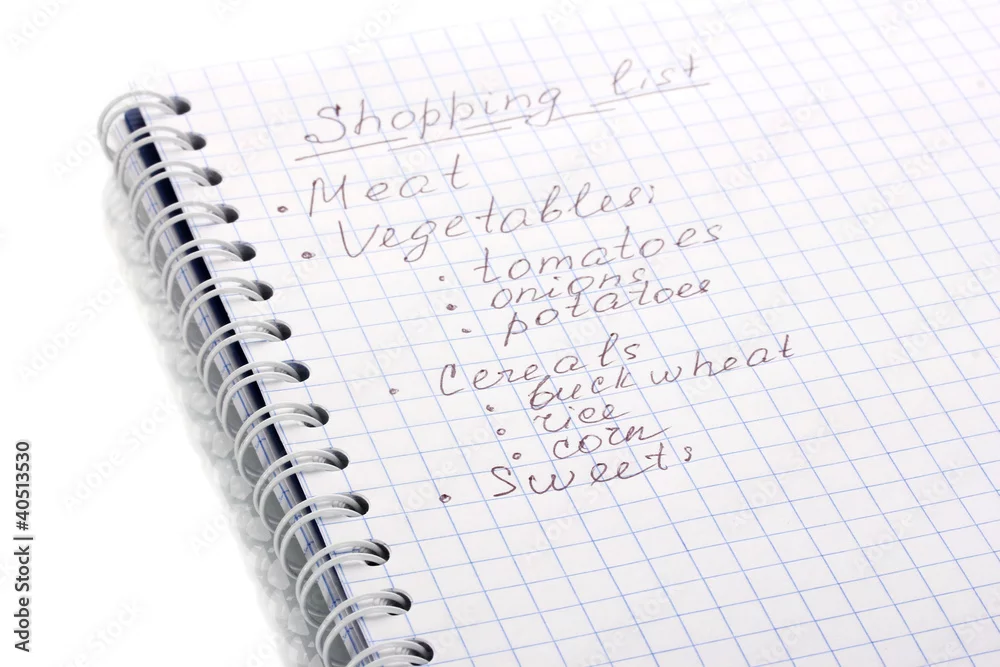 Shopping list
• Meat
• Vegetables:
• tomatoes
• onions
• potatoes
• Cereals
• buckwheat
• rice
• corn
• Sweets
Adobe Stock | #40513530